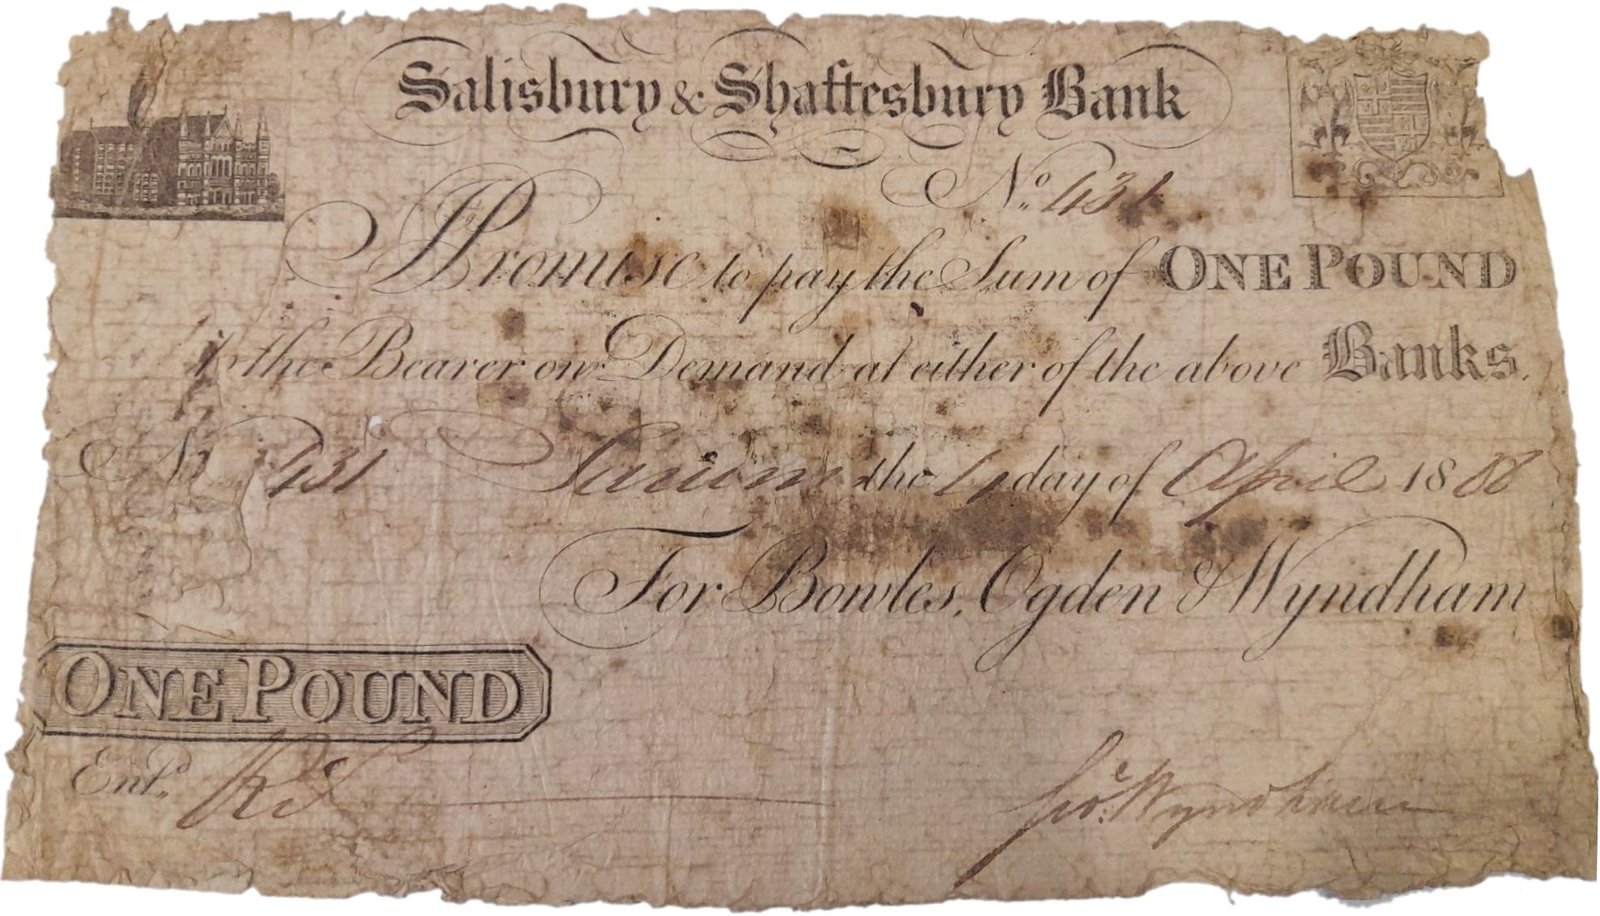 Salisbury & Shaftesbury Bank
No. 431
I Promise to pay the Sum of ONE POUND
to the Bearer on Demand at either of the above Banks.
No 431 Sarum the 4 day of April 18
For Bowles, Ogden & Wyndham
ONE POUND
Entd.
Geo. Wyndham